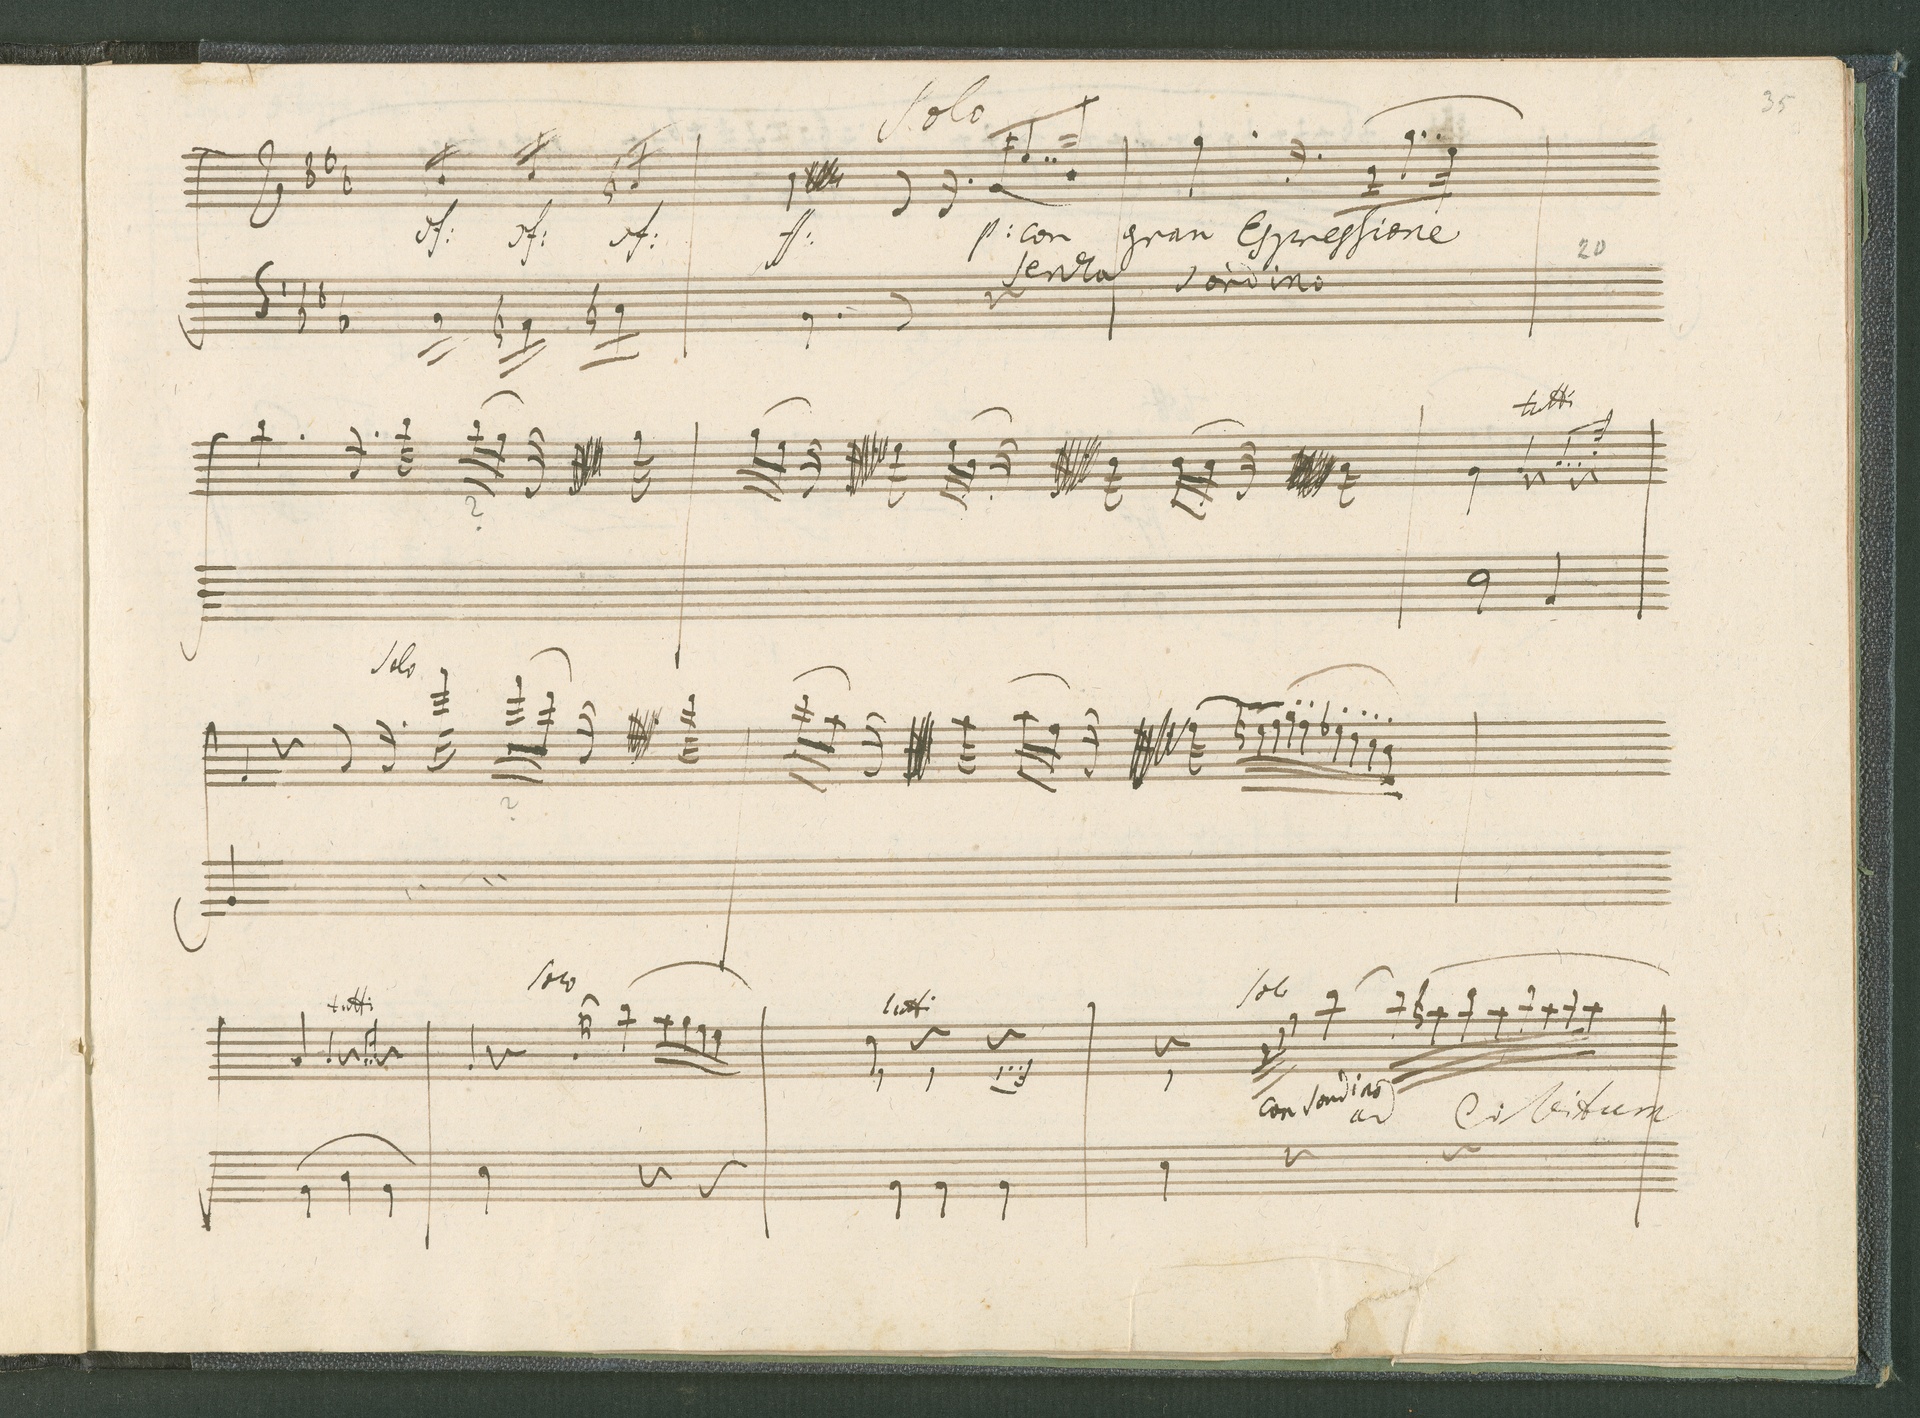 35
Solo
sf: sf: sf: ff: p: con gran Espressione
Senza Sordino
20
tutti
?
Solo
?
tutti Solo tutti Solo
con Sordino
ad Libitum